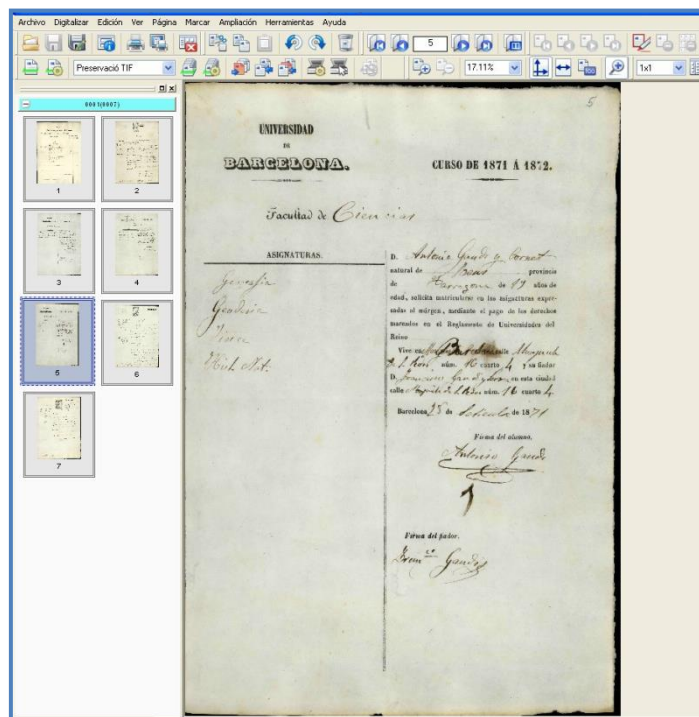 Archivo Digitalizar Edición Ver Página Marcar Ampliación Herramientas Ayuda
5
Preservació TIF
17.11%
1x1
0001(0007)
1
2
3
4
5
6
7
5
UNIVERSIDAD
DE
BARCELONA.
CURSO DE 1871 Á 1872.
Facultad de Ciencias
ASIGNATURAS.
Geografia
Hist. Nat.
D. Antonio Gaudi y Cornet
natural de Reus provincia
de Tarragona de 19 años de
edad, solicita matricularse en las asignaturas expre-
sadas al márgen, mediante el pago de los derechos
marcados en el Reglamento de Universidades del
Reino
Vive en calle
núm. 16 cuarto 4 y su fiador
D. Francisco Gaudi en esta ciudad
calle núm. 16 cuarto 4.
Barcelona 25 de de 1871
Firma del alumno.
Antonio Gaudi
Firma del fiador.
Franco Gaudi